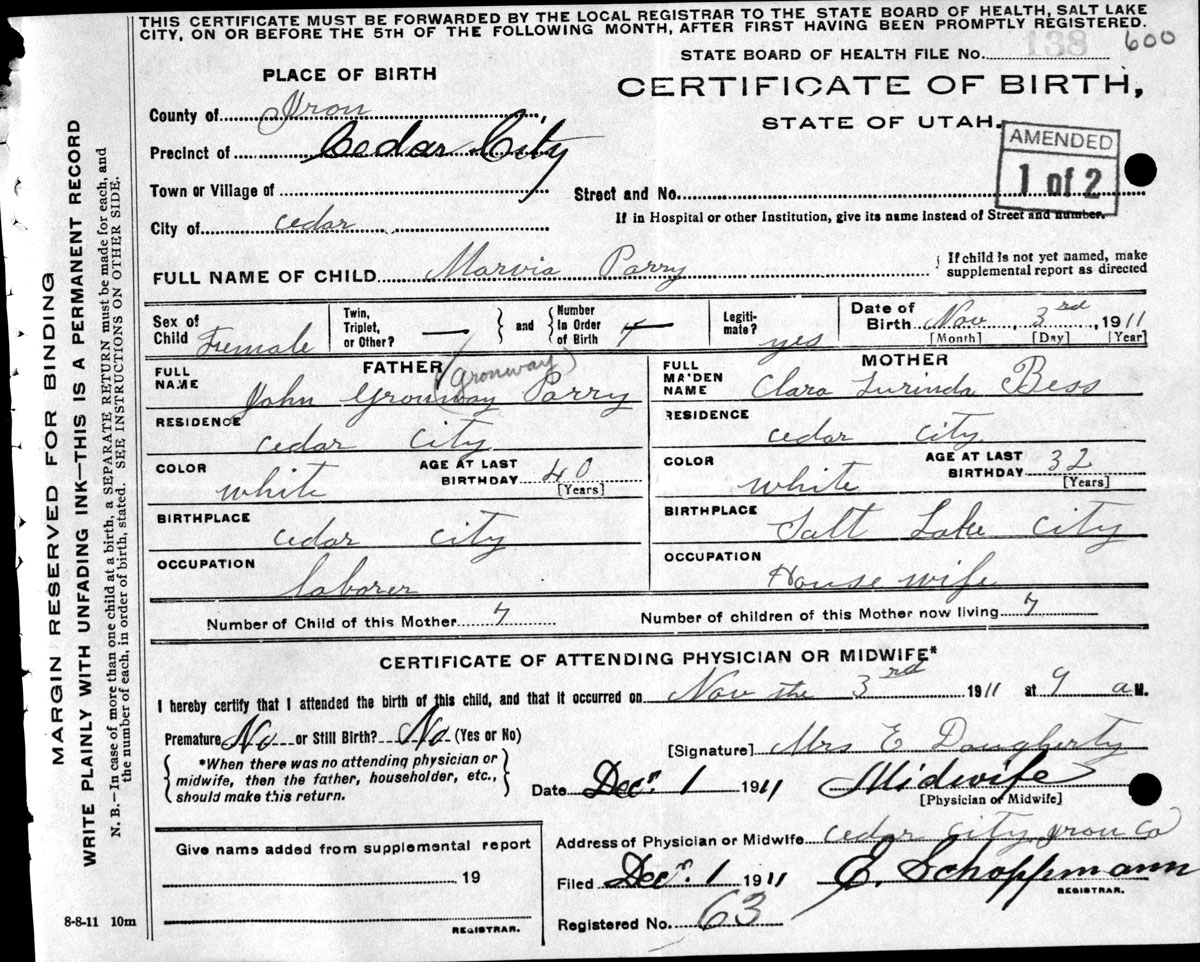 THIS CERTIFICATE MUST BE FORWARDED BY THE LOCAL REGISTRAR TO THE STATE BOARD OF HEALTH, SALT LAKE
CITY, ON OR BEFORE THE 5TH OF THE FOLLOWING MONTH, AFTER FIRST HAVING BEEN PROMPTLY REGISTERED.
STATE BOARD OF HEALTH FILE No. 138 600
PLACE OF BIRTH
CERTIFICATE OF BIRTH,
STATE OF UTAH.
County of Iron
Precinct of Cedar City
AMENDED
1 of 2
Town or Village of
Street and No.
City of cedar
If in Hospital or other Institution, give its name instead of Street and number.
FULL NAME OF CHILD Marvia Parry
If child is not yet named, make
supplemental report as directed
Sex of Child Female
Twin, Triplet, or Other? —
and
Number in Order of Birth
Legitimate? yes
Date of Birth Nov 3rd, 1911
[Month] [Day] [Year]
FATHER
FULL NAME John Gronway Parry
(Gronway)
RESIDENCE cedar city
COLOR white
AGE AT LAST BIRTHDAY 40
[Years]
BIRTHPLACE cedar city
OCCUPATION laborer
MOTHER
FULL MAIDEN NAME Clara Lurinda Bess
RESIDENCE cedar city
COLOR white
AGE AT LAST BIRTHDAY 32
[Years]
BIRTHPLACE Salt Lake City
OCCUPATION House wife
Number of Child of this Mother 7
Number of children of this Mother now living 7
CERTIFICATE OF ATTENDING PHYSICIAN OR MIDWIFE*
I hereby certify that I attended the birth of this child, and that it occurred on Nov the 3rd 1911 at 9 a M.
Premature No or Still Birth? No (Yes or No)
*When there was no attending physician or
midwife, then the father, householder, etc.,
should make this return.
[Signature] Mrs E Dougherty
Date Decr. 1 1911 Midwife
[Physician or Midwife]
Address of Physician or Midwife cedar city iron Co
Filed Decr. 1 1911 E. Schoppmann
REGISTRAR.
Registered No. 63
Give name added from supplemental report
19
REGISTRAR.
8-8-11 10m
MARGIN RESERVED FOR BINDING
WRITE PLAINLY WITH UNFADING INK—THIS IS A PERMANENT RECORD
N. B.—In case of more than one child at a birth, a SEPARATE RETURN must be made for each, and
the number of each, in order of birth, stated. SEE INSTRUCTIONS ON OTHER SIDE.